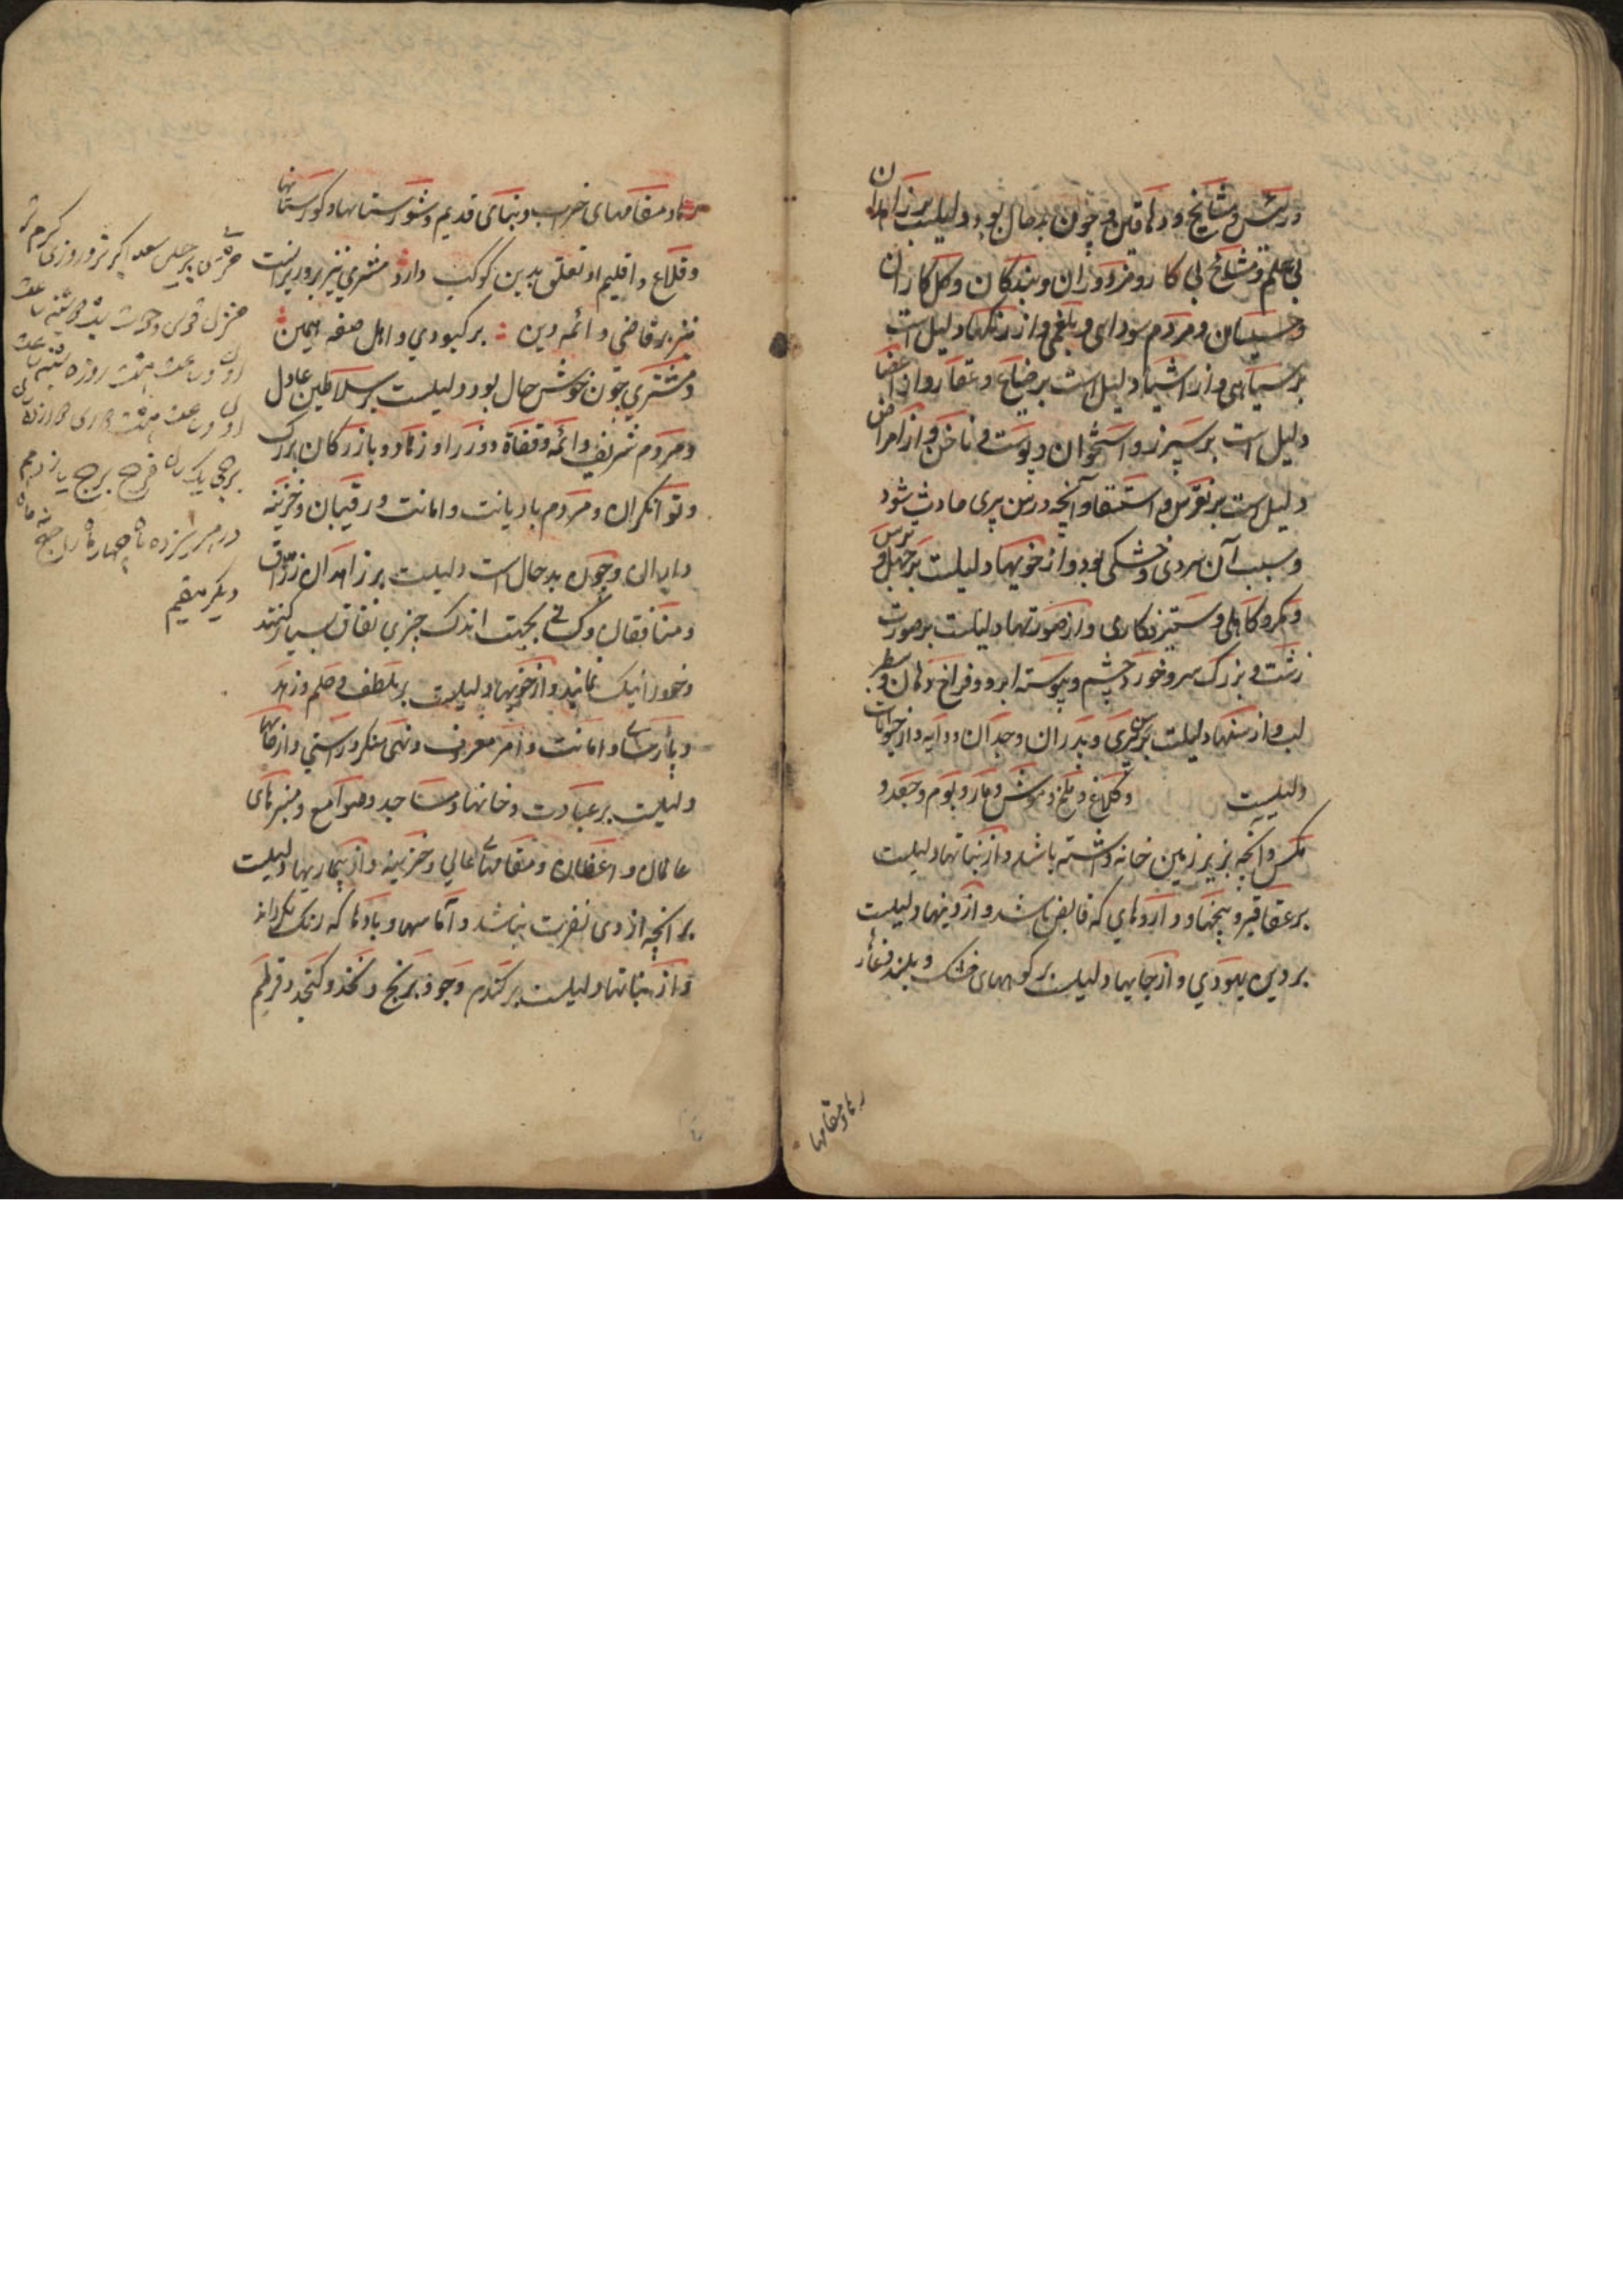 و رئیس و مشایخ و دهاقین و چون بدحال بود دلیلست بر زاهدان
بی علم و مشایخ بی کار و مزدوران و بندکان و کل کاران
و خسیسان و مردم سودایی و بلغمی و از رنکها دلیل است
بر سیاهی و از اشیا دلیل است بر ضیاع و عقار و از اعضا
دلیل است بر سپرز و استخوان و پوست و ناخن و از امراض
دلیل است بر نقرس و استسقا و آنچه در سن پیری حادث شود
و سبب آن سردی و خشکی بود و از خویها دلیلست بر جهل و ترس
و مکر و کاهلی و ستیزه کاری و از صورتها دلیلست بر صورت
زشت و بزرک سر و خورد چشم و پیوسته ابرو و فراخ دهان و سطبر
لب و از سنها دلیلست بر پیری و پدران و جدان و دایه و از حیوانات
دلیلست و کلاغ و ملخ و موش و مار و بوم و جغد و
مکس و آنچه بزیر زمین خانه داشته باشد و از نباتها دلیلست
بر عقاقیر و بیخها و داروهای که قابض باشد و از دینها دلیلست
بر دین یهودی و از جایها دلیلست بر کوههای خشک و بلند و غار
رها و مقامها
رها و مقامهای خراب و بناهای قدیم و شورستانها و کورستانها
و قلاع و اقلیم او تعلق بدین کوکب دارد مشتری نیز بروز پرانست
نیز بر قاضی و ائمه دین بر کبودی و اهل صفه ایمین
و مشتری چون خوش حال بود دلیلست بر سلاطین عادل
و مردم شریف و ائمه و قضاة و وزرا و زهاد و بازرکان بزرک
و توانکران و مردم با دیانت و امانت و رقیبان و خزینه
داران و چون بدحال است دلیلست بر زاهدان زراق
و منافقان و کسانی بجهت اندک چیزی نفاق بسیار کنند
و خود را نیک نمایند و از خویها دلیلست بر لطف و حلم و زهد
و پارسایی و امانت و امر معروف و نهی منکر و راستی و از جایها
دلیلست بر عبادت خانها و مساجد و صوامع و منبرهای
عالمان و واعظان و مقامهای عالی و خزینه و از بیماریها دلیلست
بر آنچه از وی نفرت نباشد و آماسها و بادها که رنک بکرداند
و از نباتها دلیلست بر کندم و جو و برنج و نخود و کنجد و قرطم
مشتری برجیس سعد اکبر نر و روزی کرم تر
منزل قوس و حوت
برجی یک سال فرح برج یازدهم
در هر سیزده ماه چهار ماه راجع نه ماه
دیکر مقیم